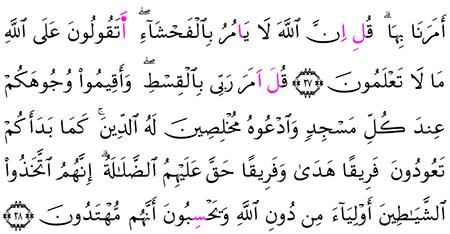 أَمَرَنَا بِهَاۗ قُلِ اِنَّ اللَّهَ لَا يَامُرُ بِالْفَحْشَآءِۖ أَتَقُولُونَ عَلَى اللَّهِ
مَا لَا تَعْلَمُونَ ﴿٢٧﴾ قُلَ اَمَرَ رَبِّى بِالْقِسْطِۖ وَأَقِيمُوا۟ وُجُوهَكُمْ
عِندَ كُلِّ مَسْجِدٍ وَادْعُوهُ مُخْلِصِينَ لَهُ الدِّينَۚ كَمَا بَدَأَكُمْ
تَعُودُونَ فَرِيقًا هَدَىٰ وَفَرِيقًا حَقَّ عَلَيْهِمُ الضَّلَٰلَةُۗ إِنَّهُمُ اتَّخَذُوا۟
الشَّيَٰطِينَ أَوْلِيَآءَ مِن دُونِ اللَّهِ وَيَحْسِبُونَ أَنَّهُم مُّهْتَدُونَ ﴿٢٨﴾